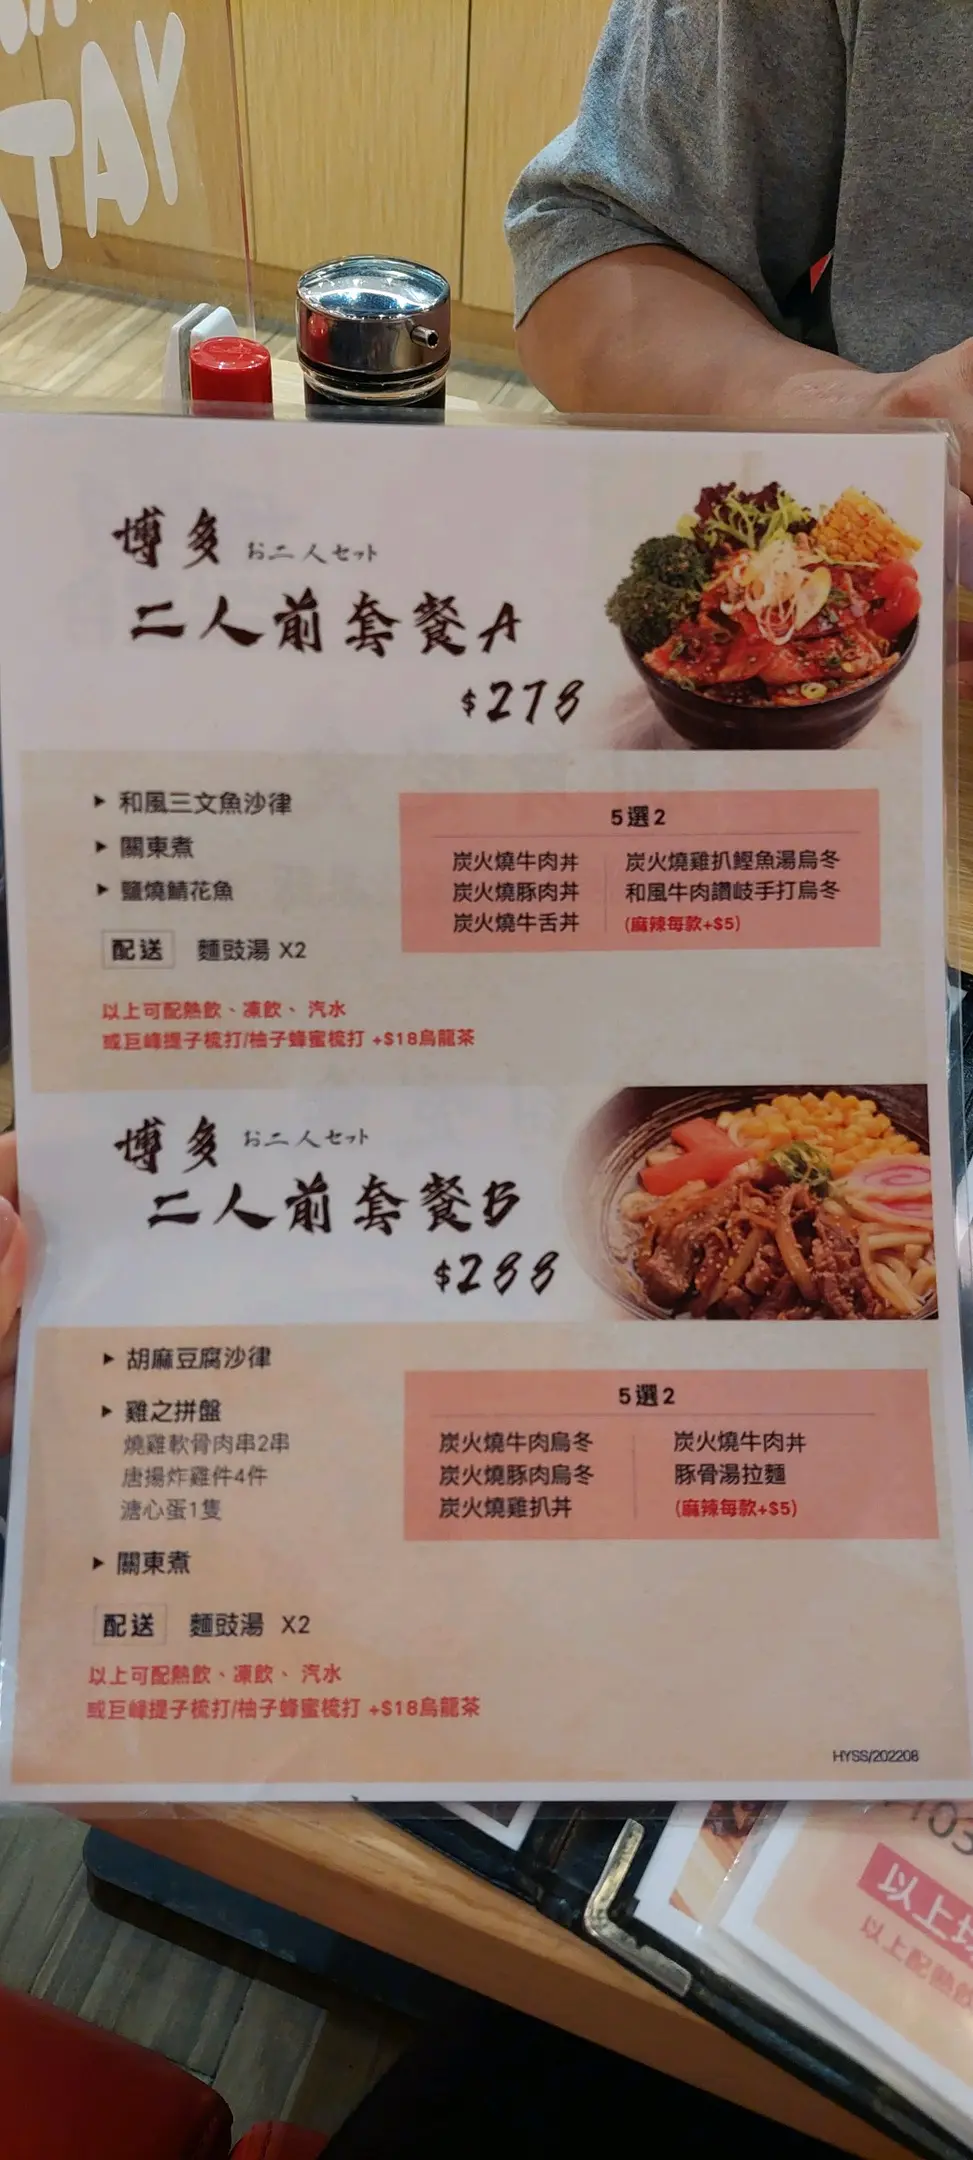 STAY
博多 お二人セット
二人前套餐A
$278
▶ 和風三文魚沙律
▶ 關東煮
▶ 鹽燒鯖花魚
配送 麵豉湯 X2
5選2
炭火燒牛肉丼
炭火燒豚肉丼
炭火燒牛舌丼
炭火燒雞扒鰹魚湯烏冬
和風牛肉讚岐手打烏冬
(麻辣每款+$5)
以上可配熱飲、凍飲、汽水
或巨峰提子梳打/柚子蜂蜜梳打 +$18烏龍茶
博多 お二人セット
二人前套餐B
$288
▶ 胡麻豆腐沙律
▶ 雞之拼盤
燒雞軟骨肉串2串
唐揚炸雞件4件
溏心蛋1隻
▶ 關東煮
配送 麵豉湯 X2
5選2
炭火燒牛肉烏冬
炭火燒豚肉烏冬
炭火燒雞扒丼
炭火燒牛肉丼
豚骨湯拉麵
(麻辣每款+$5)
以上可配熱飲、凍飲、汽水
或巨峰提子梳打/柚子蜂蜜梳打 +$18烏龍茶
HYSS/202208
以上
以上配熱飲